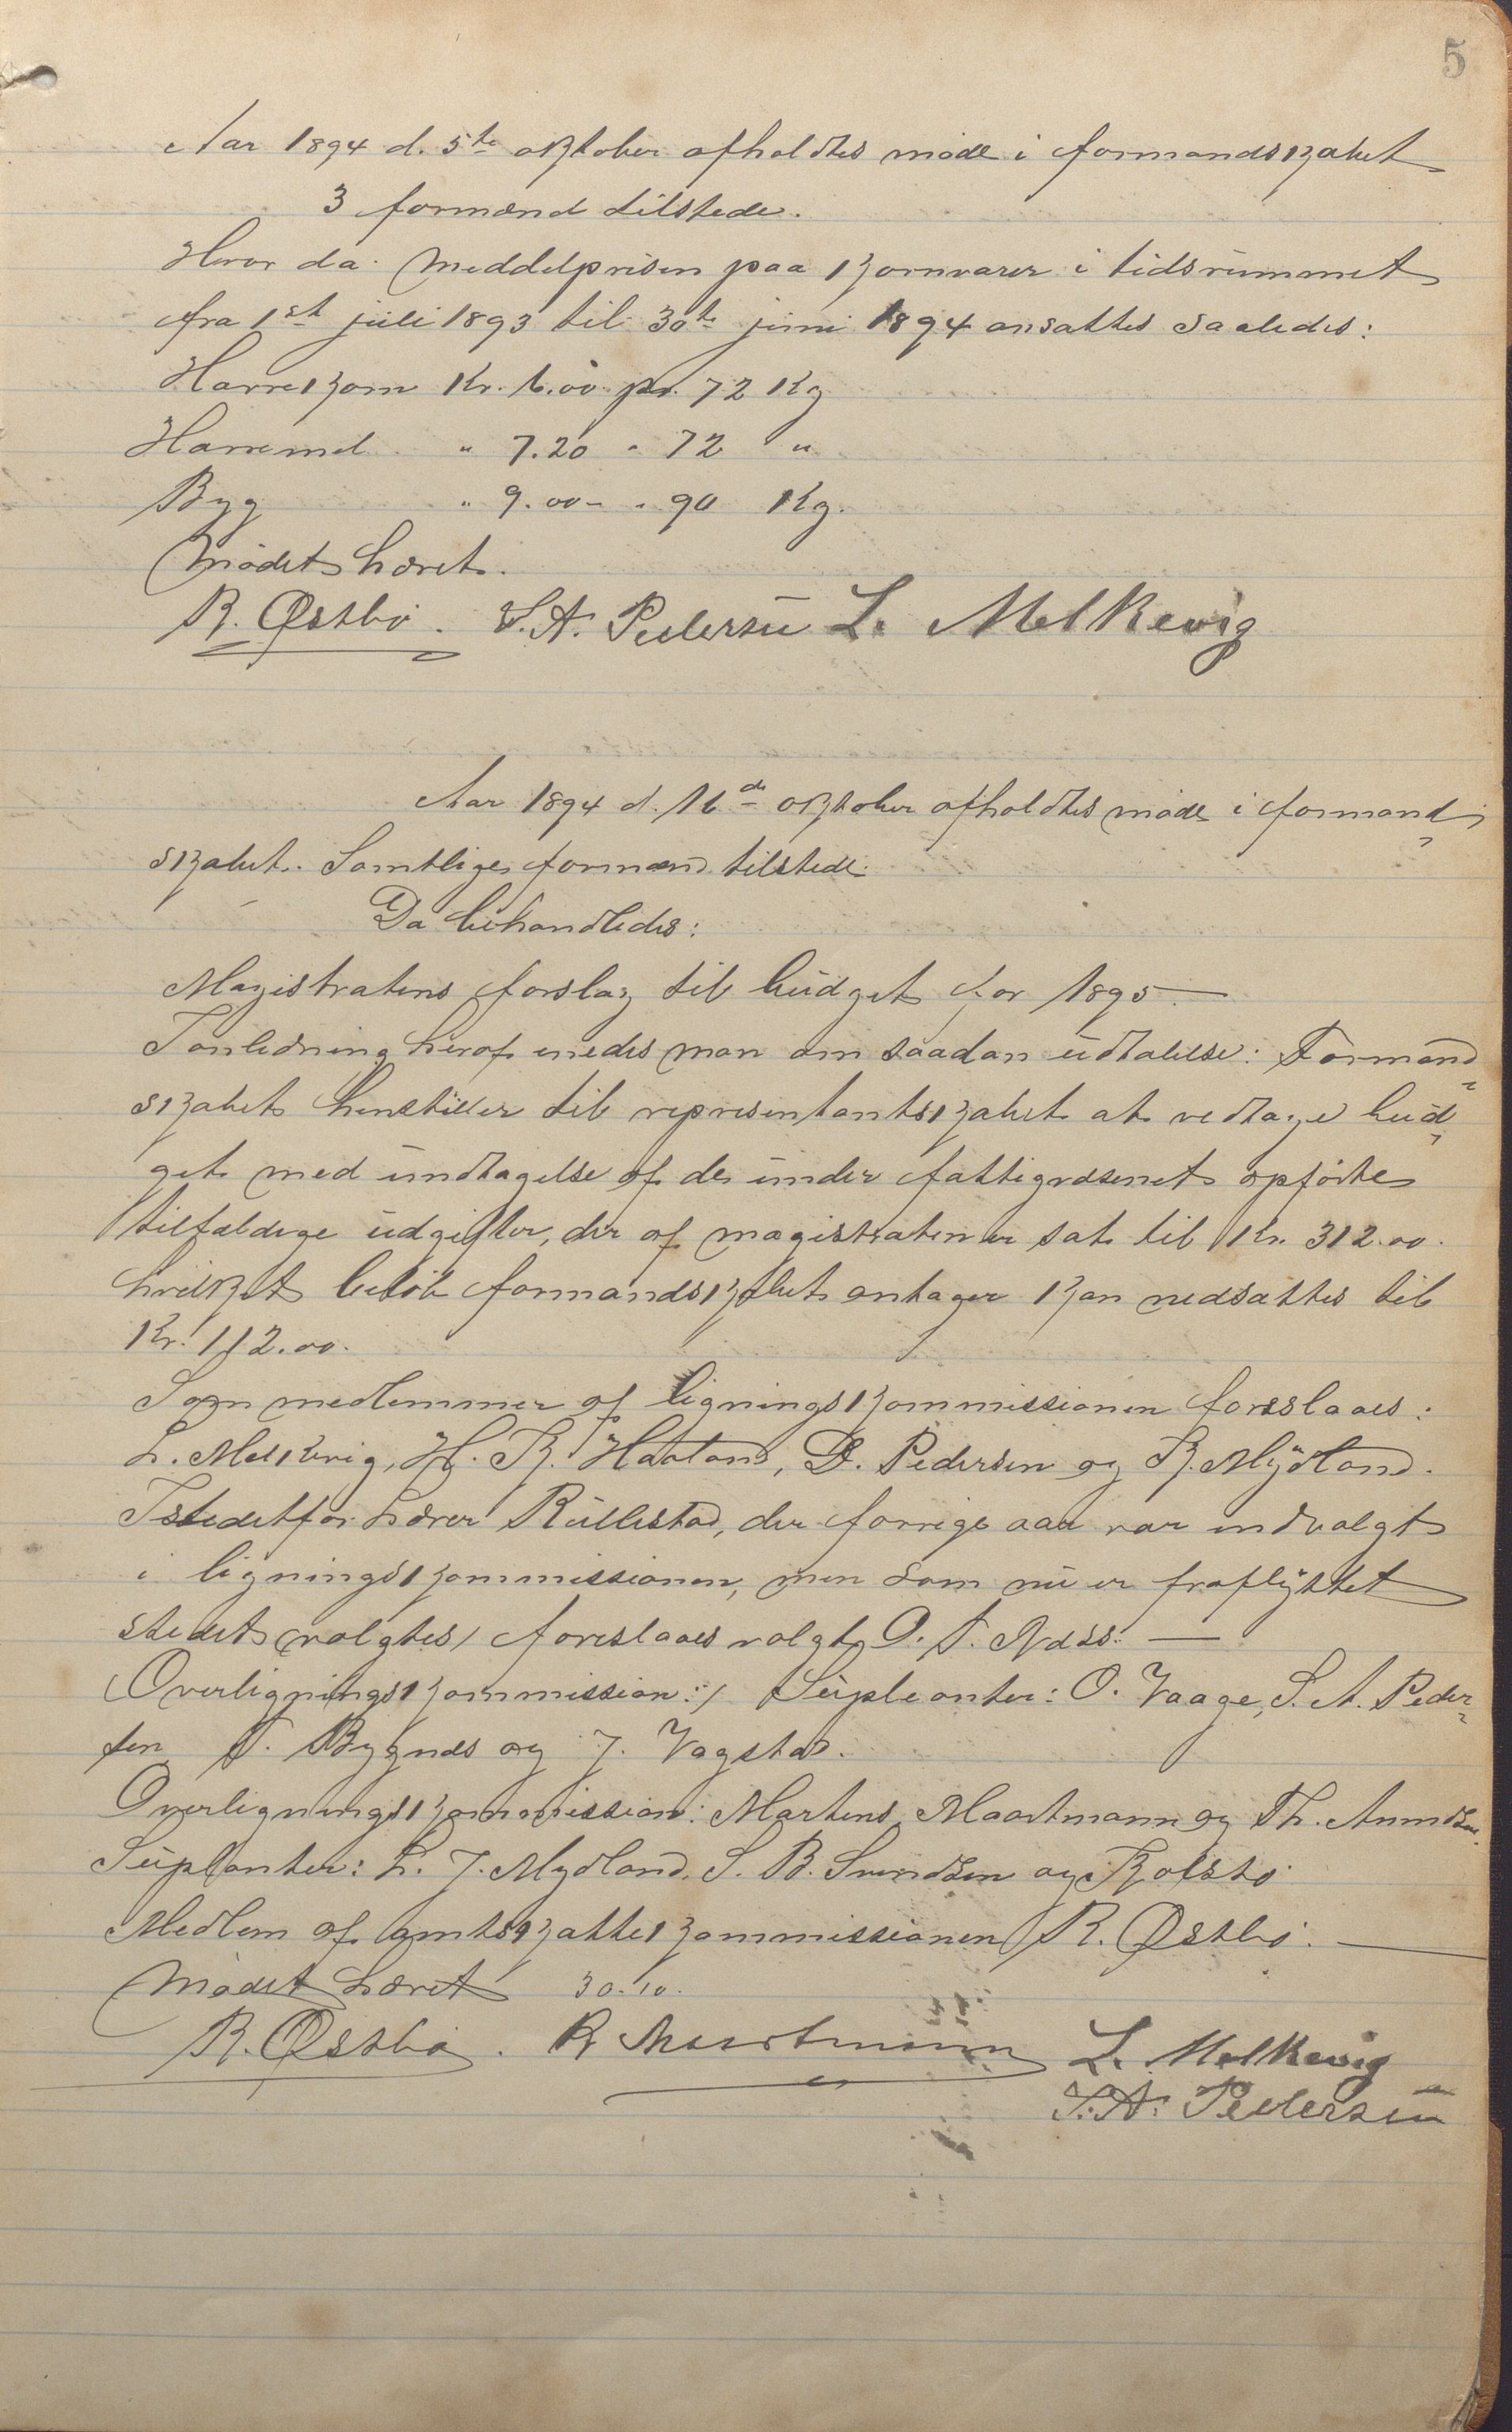 5
Aar 1894 d. 5te oktober afholdtes møde i formandskabet
3 formænd tilstede.
Hvor da Middelprisen paa kornvarer i tidsrummet
fra 1st juli 1893 til 30te juni 1894 ansattes saaledes:
Havrekorn Kr. 6.00 pr. 72 Kg
Havremel " 7.20 " 72 "
Byg " 9.00 - " 90 Kg.
Mødet hævet.
R. Østbø. S. A. Pedersen L. Melkevig
Aar 1894 d. 16de oktober afholdtes møde i formand-
skabet. Samtlige formænd tilstede.
Da behandledes:
Magistratens forslag til budget for 1895 —
I anledning heraf enedes man om saadan udtalelse: Formand-
skabet henstiller til representantskabet at vedtage bud-
get med undtagelse af de under fattigvæsenet opførte
tilfældige udgifter, der af magistraten er sat til Kr. 312.00.
hvilket beløb formandskabet antager kan nedsættes til
Kr. 112.00.
Som medlemmer af ligningskommissionen foreslaaes:
L. Melkevig, H. K. Haaland, D. Pedersen og K. Mydland.
Istedetfor Lærer Rullestad, der forrige aar var indvalgt
i ligningskommissionen, men som nu er fraflyttet
stedet (valgtes) foreslaaes valgt O. T. Næss. —
(Overligningskommission:) Supleanter: O. Vaage, S. A. Peder-
sen T. Bygnes og J. Vagstad.
Overligningskommission: Martens, Maartmann og Th. Amundsen.
Suplanter: L. J. Mydland, S. B. Svendsen og Kolstø
Medlem af amtsskattekommissionen R. Østbø. —
Mødet hævet 30.10.
R. Østbø. R Maartmann L. Melkevig
S. A. Pedersen